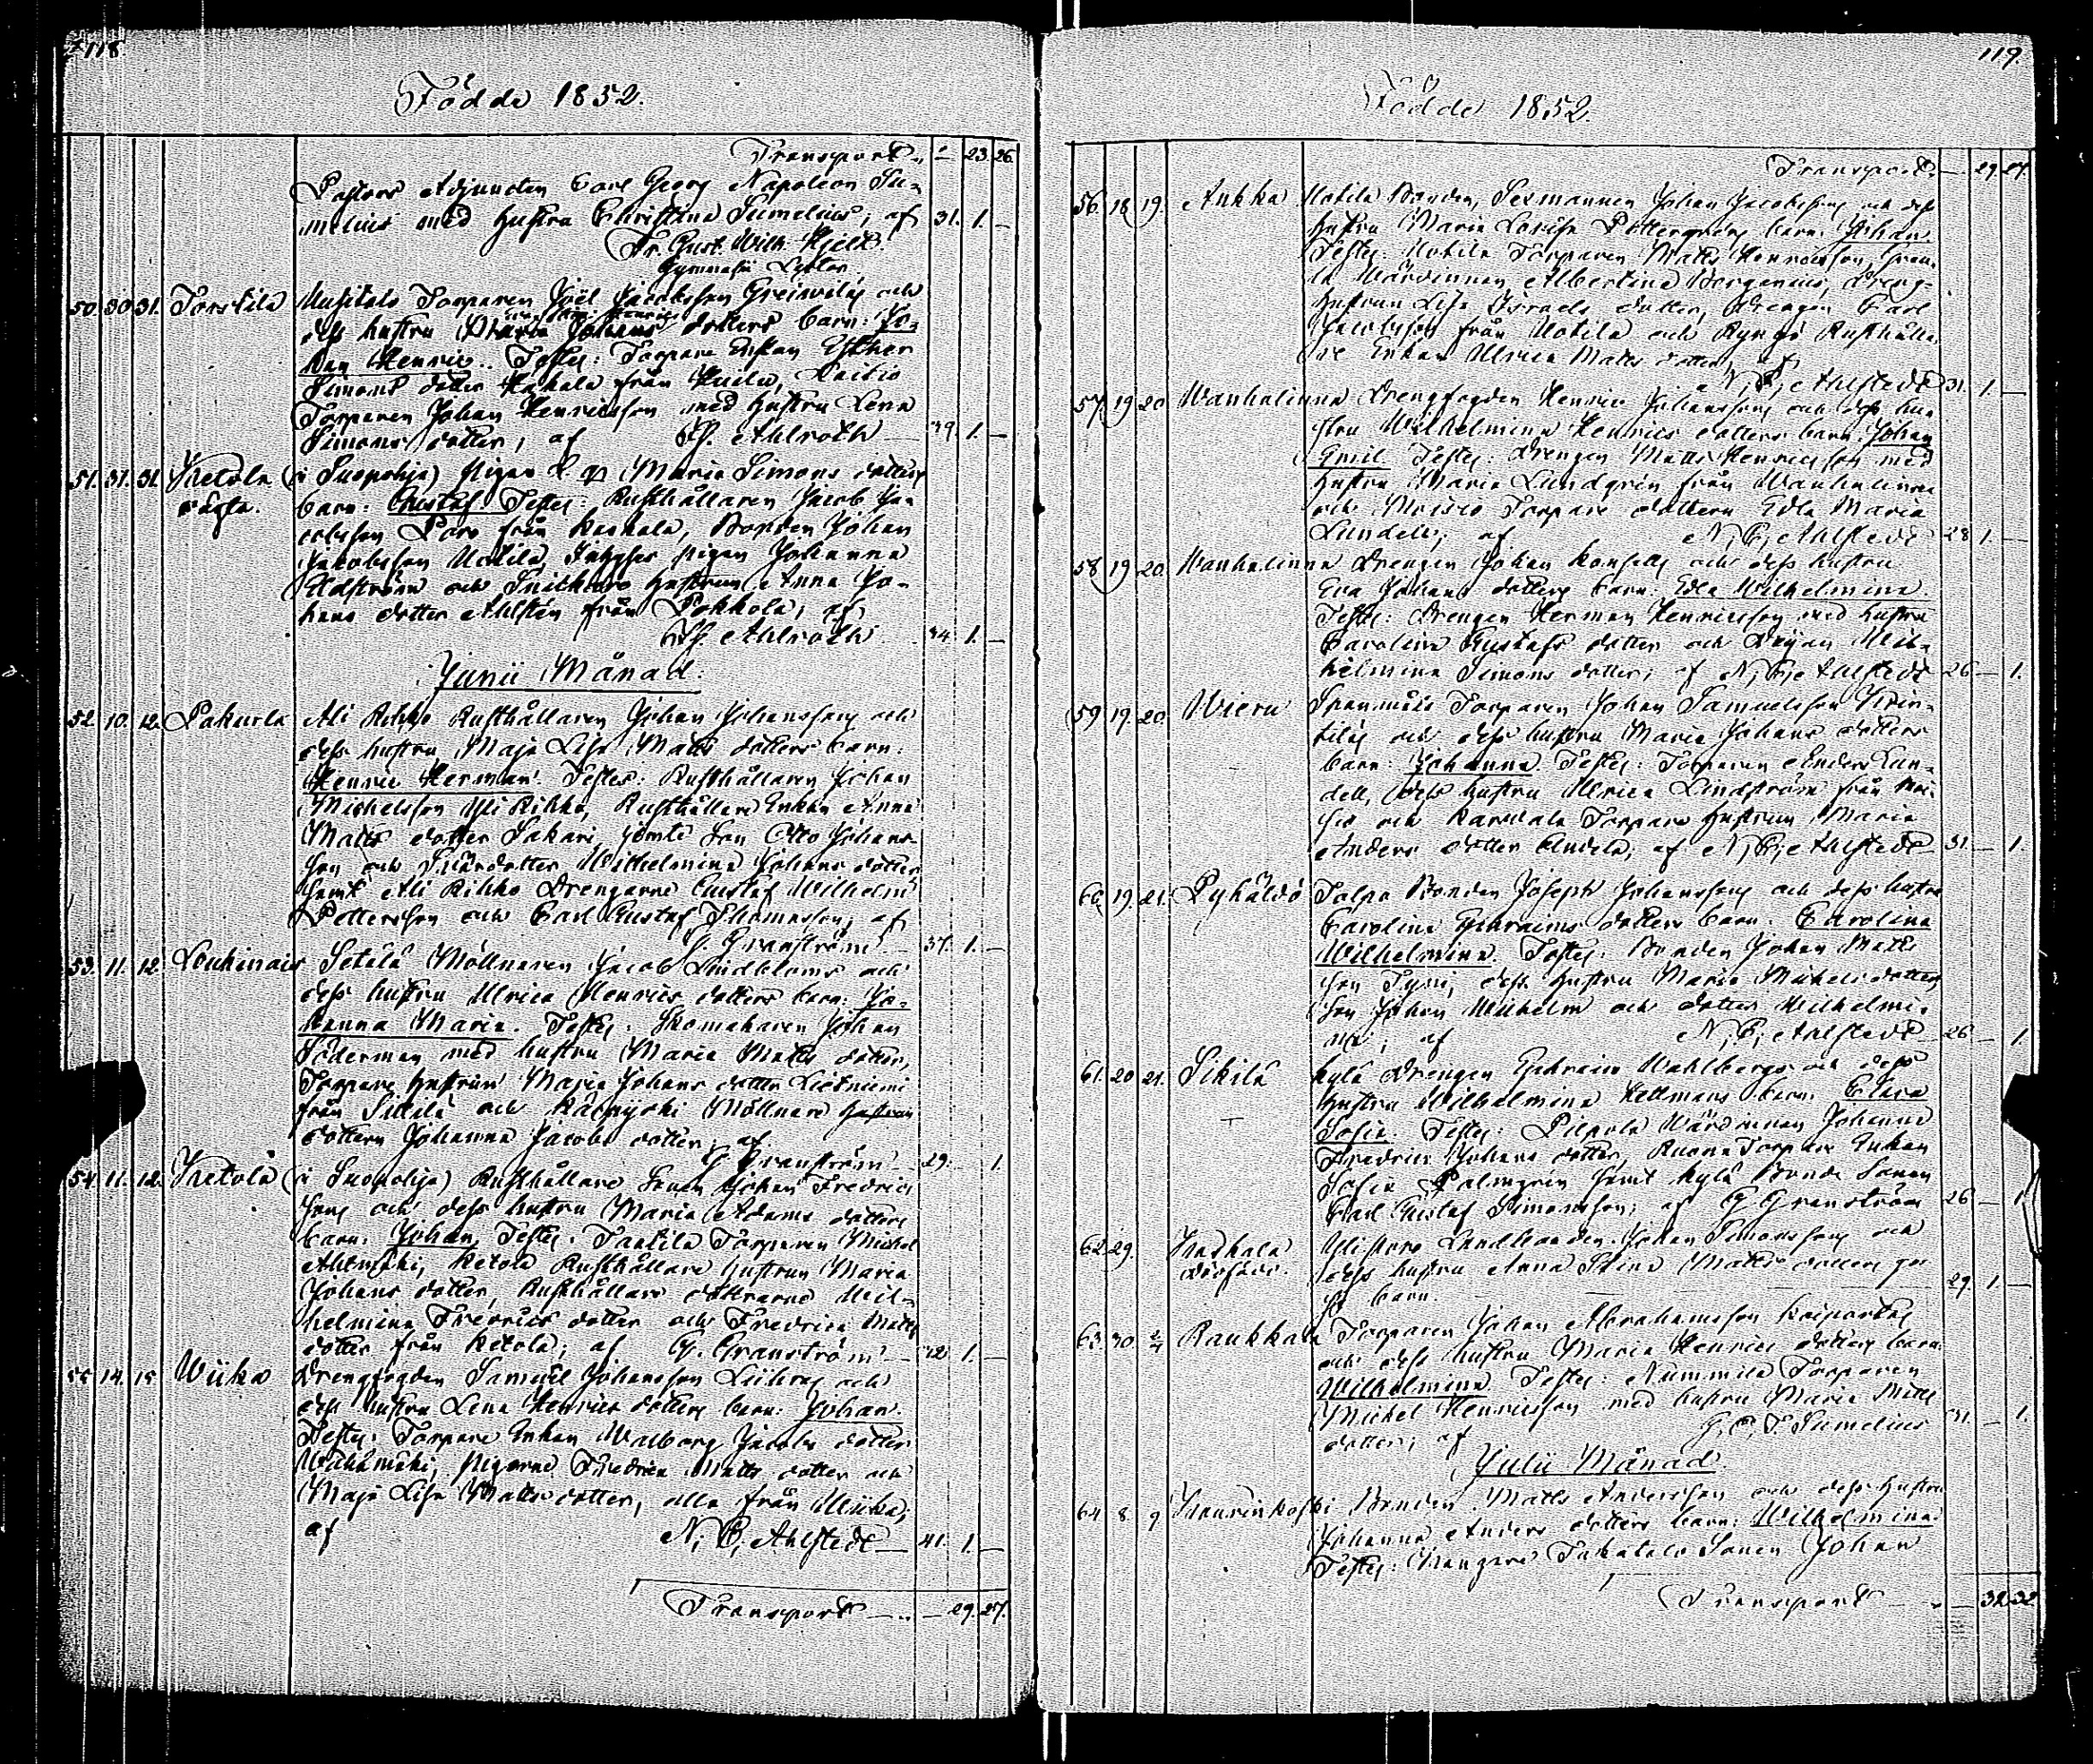 118
Födde 1852.
Transport 23. 26.
Pastors Adjuncten Carl Georg Napoleon Su-
melius med hustru Christina Sumelius, af 31. 1. —
Fr. Gust. Wilh. Hjelt
Gymnasii Lector
50. 30. 31. Torstila Torparen Joël Jacobsson och
dess hustru Maria Johans dotters barn: Jo-
han Henric. Testes: Torpare Enkan Esther
Simons dotter från
Torparen Johan Henricsson med hustru Lena
Simons dotter, af Ahlroth 39. 1. —
51. 31. 31. Ketola (i Suopohja) pigan Maria Simons dotters
barn: Gustaf Testes: Rusthållaren Jacob Ja-
cobsson från Kaskala, Bonden Johan
Jacobsson Uotila, pigan Johanna
och hustrun Anna Jo-
hans dotter Ahlstén från Pohkola, af
Ahlroth 34. 1. —
Junii Månad.
52. 10. 12. Pakurla Ali Rikko Rusthållaren Johan Johansson och
dess hustru Maja Lisa Matts dotters barn:
Henric Herman. Testes: Rusthållaren Johan
Michelsson Yli Rikko, Rusthållare Enkan Anna
Matts dotter Sakari jemte Son Otto Johans-
son och Svärdotter Wilhelmina Johans dotter
samt Ali Rikko Drengarne Gustaf Wilhelm
Pettersson och Carl Gustaf Thomasson; af
G. Granström 37. 1. —
53. 11. 12. Loukinais Sotala Möllnaren Jacob Lindbloms och
dess hustru Ulrica Henrics dotters barn: Jo-
hanna Maria. Testes: Skomakaren Johan
Söderman med hustru Maria Matts dotter,
Torpare hustrun Maria Johans dotter Lietniemi
från Sikilä och Möllnare hustrun
dottern Johanna Jacobs dotter; af
G. Granström 29. — 1.
54. 11. 12. Ketola (i Suopohja) Rusthållare Sonen Johan Fredrics
sons och dess hustru Maria Adams dotters
barn: Johan. Testes: Tantila Torparen Michel
Ahtmäki, Ketola Rusthållare hustrun Maria
Johans dotter, Rusthållare döttrarne Wil-
helmina Fredrics dotter och Fredrica Matts
dotter från Ketola; af G. Granström 42. 1. —
55. 14. 15. Wiika Drengfogden Samuel Johansson och
dess hustru Lena Henrics dotters barn: Johan.
Testes: Torpare Enkan Walborg Jacobs dotter
pigorne Fredrica Matts dotter och
Maja Lisa Matts dotter, alla från Wiika;
af N. C. Ahlstedt 41. 1. —
Transport — 29. 27.
119.
Födde 1852.
Transport — 29. 27.
56. 18. 19. Ankka Uotila Bonden, Sexmannen Johan Jacobssons och dess
hustru Maria Lovisa Pettersgrens barn: Johan.
Testes: Uotila Torparen Matts Henricsson,
Wärdinnan Albertina Bergenius, Dreng-
hustrun Lisa Israels dotter, Drengen Carl
Jacobsson från Uotila och Rusthålla-
re Enkan Ulrica Matts dotter; af
N. C. Ahlstedt 31. 1. —
57. 19. 20. Wanhalinna Drengfogden Henric Johanssons och dess hu-
stru Wilhelmina Henrics dotters barn: Johan
Emil. Testes: Drengen Matts Henricsson med
hustru Maria Lundgrén från Wanhalinna
och Moisio Torpare dottern Edla Maria
Lundell; af N. C. Ahlstedt 28. 1. —
58. 19. 20. Wanhalinna Drengen Johan och dess hustru
Eva Johans dotters barn: Edla Wilhelmina.
Testes: Drengen Herman Henricsson med hustru
Carolina Gustafs dotter och Pigan Wil-
helmina Simons dotter; af N. C. Ahlstedt 26 — 1.
59. 19. 20. Wieru Torparen Johan Samuelsson
och dess hustru Maria Johans dotters
barn: Johanna. Testes: Torparen Anders Lun-
dell, dess hustru Ulrica Lindström från Moi-
sio och Torpare hustrun Maria
Anders dotter; af N. C. Ahlstedt 31. — 1.
60. 19. 21. Pyhältö Talpo Bonden Joseph Johanssons och dess hustru
Carolina Ephraims dotters barn: Carolina
Wilhelmina. Testes: Bonden Johan Matts
son, dess hustru Maria Michels dotter
Son Johan Wilhelm och dotter Wilhelmi-
na; af N. C. Ahlstedt 26 — 1.
61. 20. 21. Sikilä Kylä Drengen Ephraim Wahlbergs och dess
hustru Wilhelmina Hellmans barn: Clara
Sofia. Testes: Piipola Wärdinnan Johanna
Fredrica Johans dotter, Torpare Enkan
Sofia Palmgrén samt Kylä Bonde Sonen
Carl Gustaf Simonsson; af G. Granström 26 — 1
62. 29. Kaskala Landbonden Johan Simonssons och
dödfödd. dess hustru Anna Stina Matts dotters
barn. 29. 1. —
63. 30. 2/4 Raukkala Torparen Johan Abrahamsson
och dess hustru Maria Henrics dotters barn:
Wilhelmina. Testes: Nummila Torparen
Michel Henricsson med hustru Maria Matts
dotter; af G. C. F. Sumelius 31. — 1.
Julii Månad
64. 8. 9 Kaurinkoski Bonden Matts Anderssons och dess hustru
Johanna Anders dotters barn: Wilhelmina
Testes: Sonen Johan
Transport — 32. 32